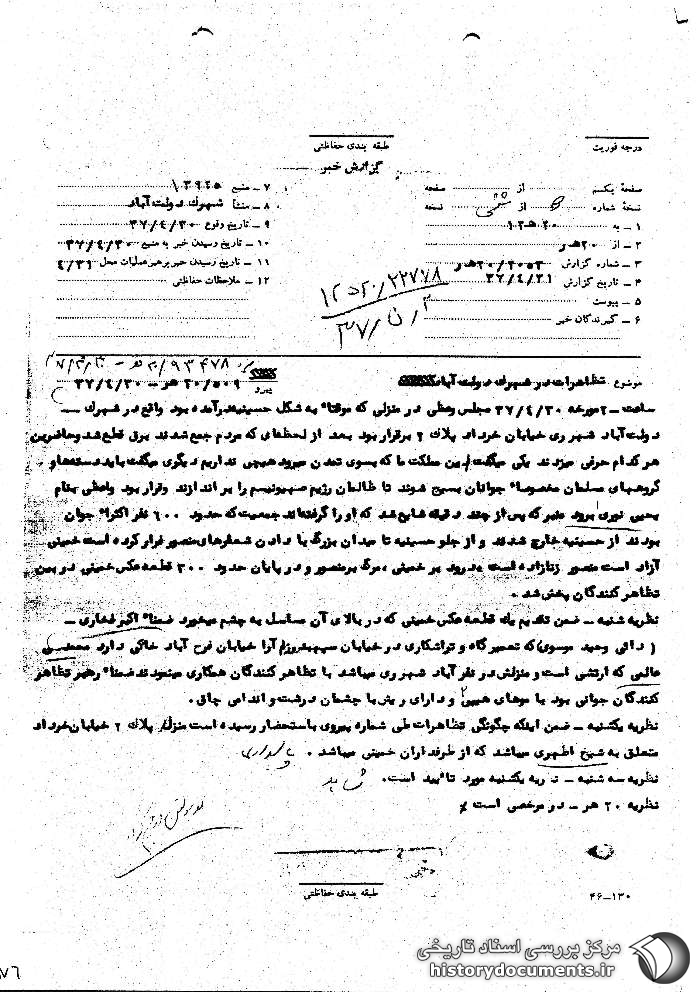 درجه فوریت
طبقه بندی حفاظتی
گزارش خبر
صفحهٔ یکم از صفحه
نسخهٔ شماره از نسخه
۱ ـ به ۲۰ هـ ۱۲
۲ ـ از ۲۰ هـ ر
۳ ـ شماره گزارش
۴ ـ تاریخ گزارش ۳۷/۴/۳۱
۵ ـ پیوست
۶ ـ گیرندگان خبر
۷ ـ منبع ۱۳۹۲۵
۸ ـ منشأ شهرك دولت آباد
۹ ـ تاریخ وقوع ۳۷/۴/۳۰
۱۰ ـ تاریخ رسیدن خبر به منبع ۳۷/۴/۳۰
۱۱ ـ تاریخ رسیدن خبر برهبر عملیات محل ۴/۳۱
۱۲ ـ ملاحظات حفاظتی
موضوع تظاهرات در شهرك دولت آباد
پیرو ۲۰/۵۰۹ هـ ر ـ ۳۷/۴/۳۰
ساعت ۲۰ مورخه ۳۷/۴/۳۰ مجلس وعظی در منزلی که موقتا" به شکل حسینیه درآمده بود واقع در شهرك ـ
دولت آباد شهر ری خیابان خرداد پلاك ۲ برقرار بود بعد از لحظه‌ای که مردم جمع شدند برق قطع شد و حاضرین
هر کدام حرفی میزدند یکی میگفت این مملکت ما که بسوی تمدن میرود هیچی نداریم دیگری میگفت باید دسته‌ها و
گروههای مسلمان مخصوصا" جوانان بسیج شوند تا ظالمان رژیم صهیونیسم را براندازند وقرار بود واعظی بنام
یحیی نوری برود منبر که پس از چند دقیقه شایع شد که او را گرفته‌اند جمعیت که حدود ۶۰۰ نفر اکثرا" جوان
بودند از حسینیه خارج شدند و از جلو حسینیه تا میدان بزرگ با دادن شعارهای منصور فرار کرده است خمینی
آزاد است منصور زنازاده است درود بر خمینی ، مرگ بر منصور و در پایان حدود ۳۰۰ قطعه عکس خمینی در بین
تظاهر کنندگان پخش شد .
نظریه شنبه ـ ضمن تقدیم یك قطعه عکس خمینی که در بالای آن مسلسل به چشم میخورد ضمنا" اکبر فخاری ـ
( دائی وحید موسوی) که تعمیرگاه و تراشکاری در خیابان سپهبد رزم آرا خیابان فرح آباد خاکی دارد محمد تقی
عالمی که ارتشی است و منزلش در ظفر آباد شهر ری میباشد با تظاهر کنندگان همکاری مینمودند ضمنا" رهبر تظاهر
کنندگان جوانی بود با موهای هیپی و دارای ریش با چشمان درشت و اندامی چاق .
نظریه یکشنبه ـ ضمن اینکه چگونگی تظاهرات طی شماره پیروی باستحضار رسیده است منزل پلاك ۲ خیابان خرداد
متعلق به شیخ اطهری میباشد که از طرفداران خمینی میباشد .
نظریه سه شنبه ـ نظریه یکشنبه مورد تائید است.
نظریه ۲۰ هـ ر ـ در مرخصی است
طبقه بندی حفاظتی
۴۶-۱۳۰
۷۶
مرکز بررسی اسناد تاریخی
historydocuments.ir